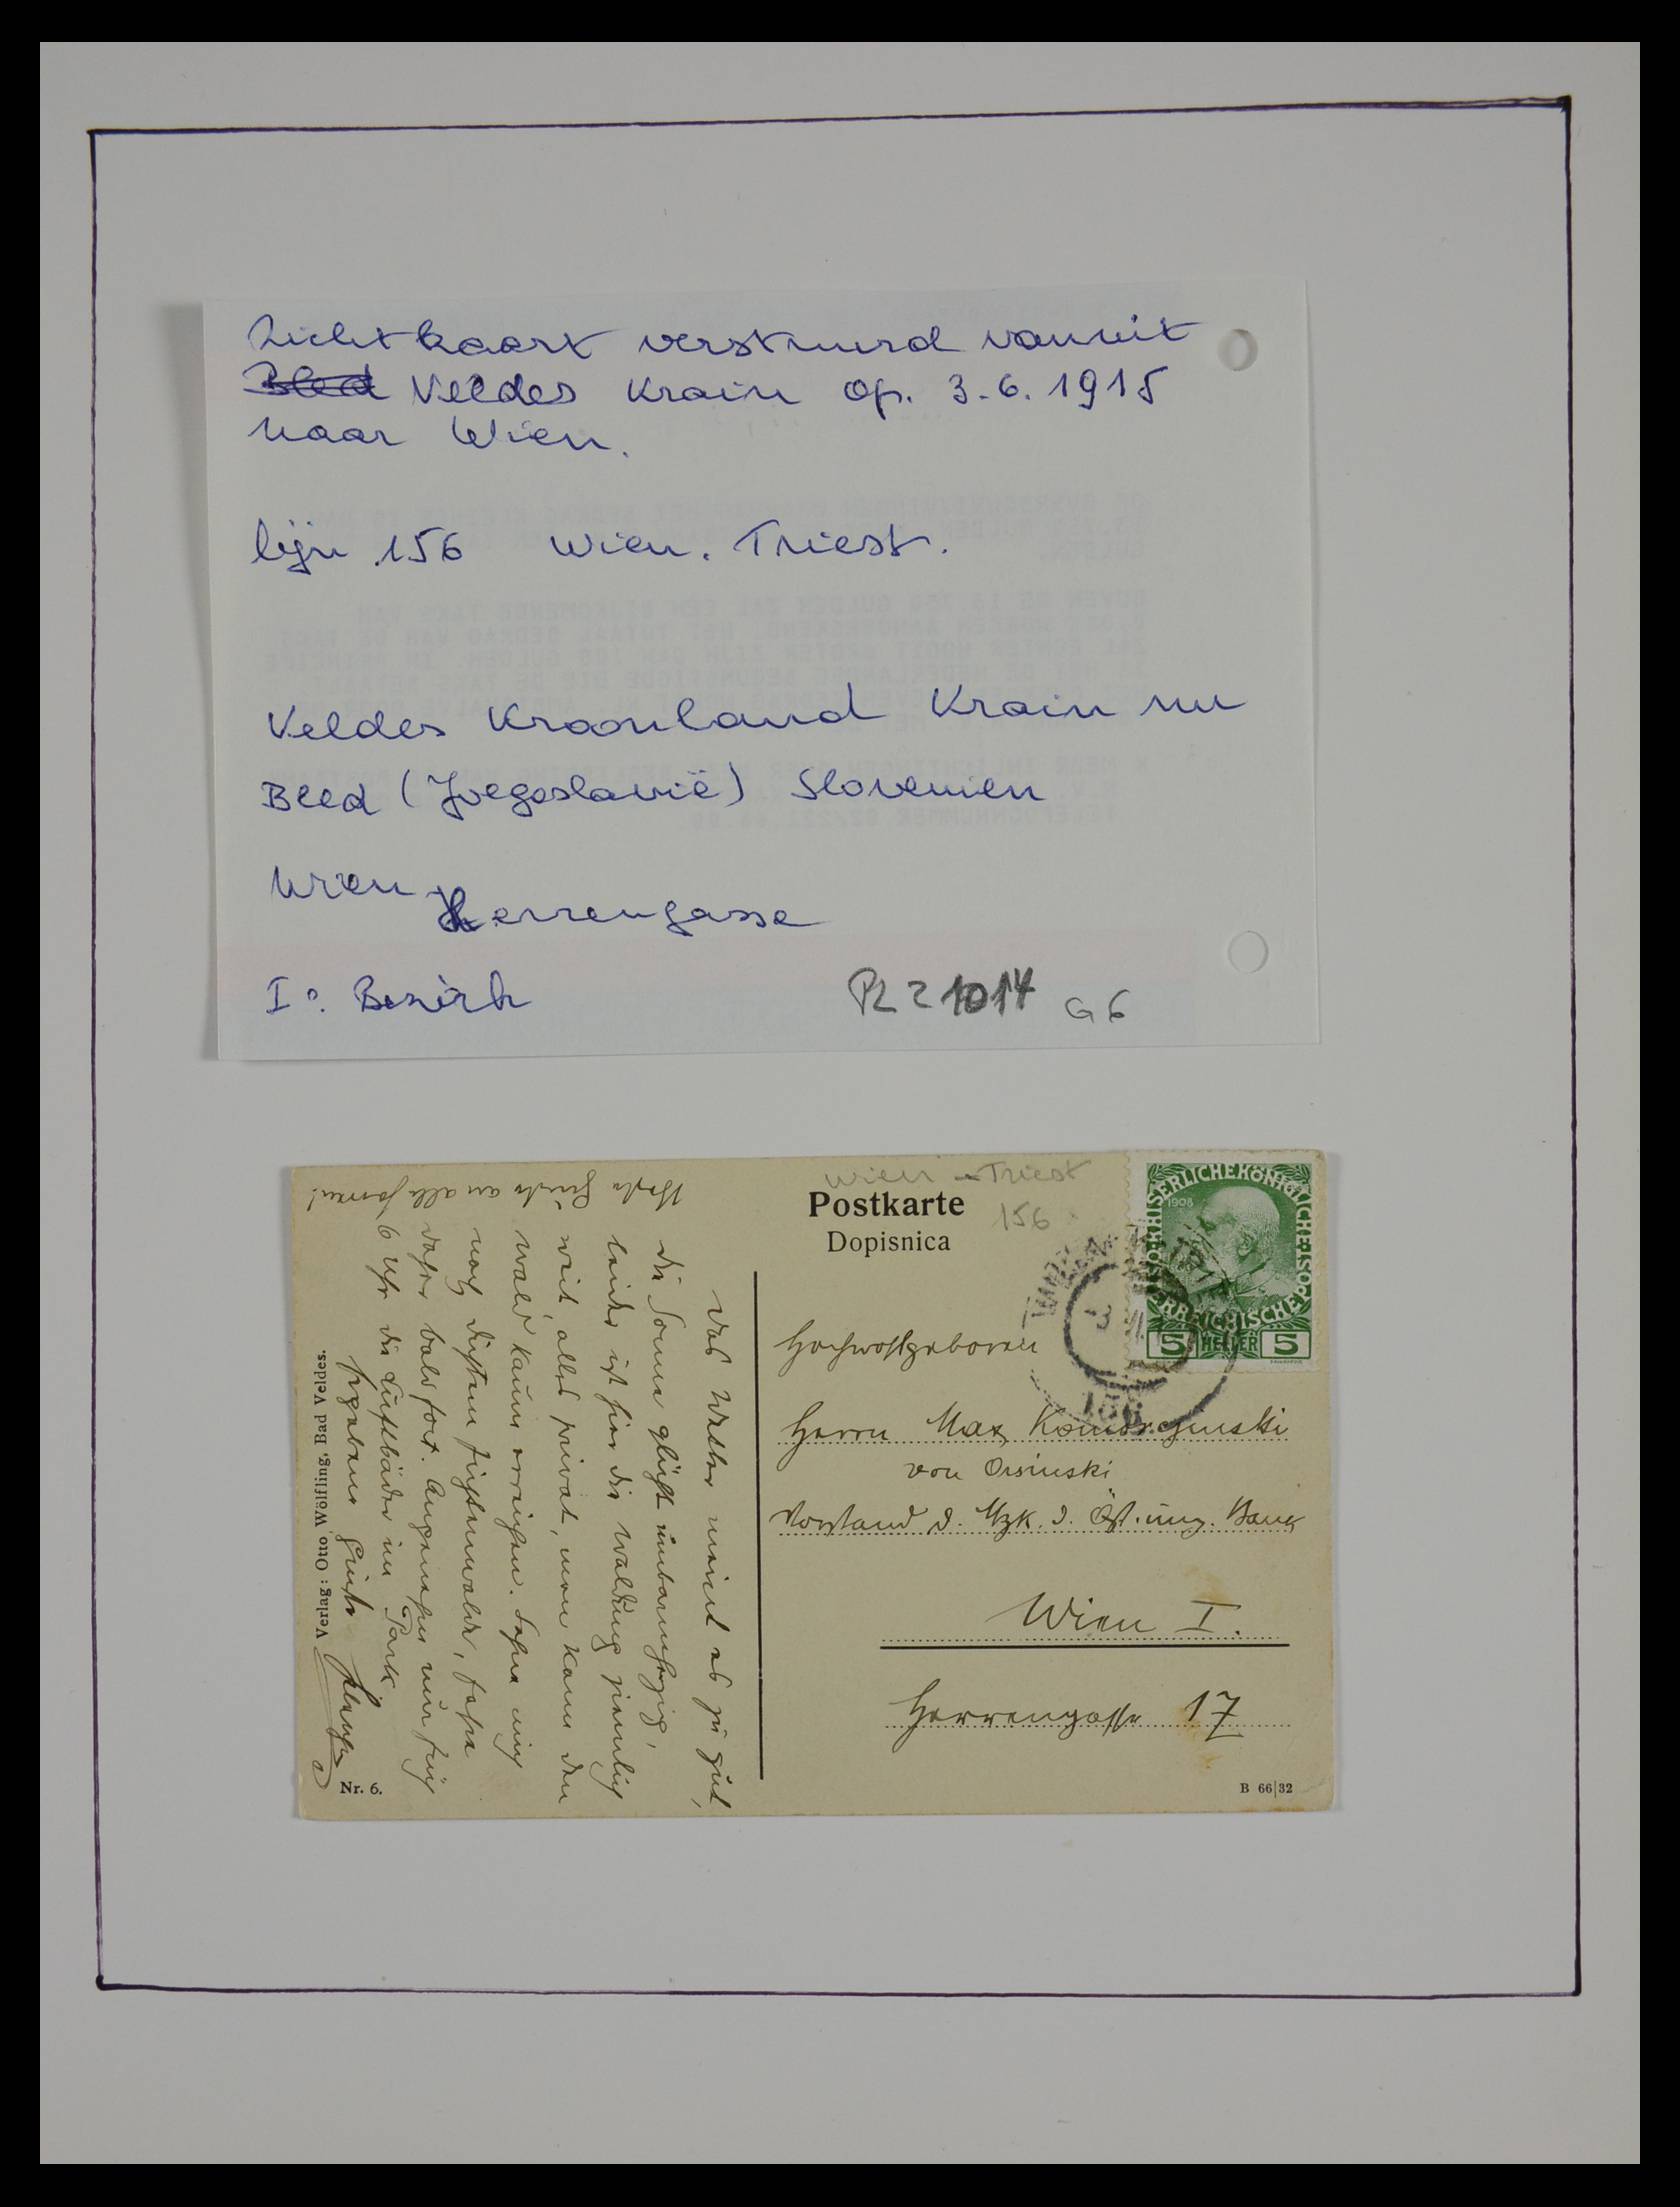 Zichtkaart verstuurd vanuit
Bled Veldes Krain op. 3.6.1915
naar Wien.
lijn 156 Wien. Triest.
Veldes Kroonland Krain nu
Bled (Joegoslavië) Slovenien
Wien Herrengasse
I° Bezirk
PL 2 1014 G6
Wien - Triest
156
Postkarte
Dopisnica
1908
KAISERLICHE KÖNIGLICHE ÖSTERREICHISCHE POST
5 HELLER 5
WIEN
156
Hochwohlgeboren
Herrn Max Komorzynski
von Orsinski
Vorstand d. Öst. ung. Bank
Wien I.
Herrengasse 17
B 66|32
Das Wetter meint es zu gut,
die Sonne glüht unbarmherzig,
leider ist hier die Waldung ziemlich
weit, alles privat, man kann den
Wald kaum erreichen. Sehne mich
nach dichten Fichtenwalde, fahre
daher bald fort. Angenehm nur früh
6 Uhr die Luftbäder im Park
ergebene Grüße
Beste Grüße an alle Herren!
Verlag: Otto Wölfling, Bad Veldes.
Nr. 6.